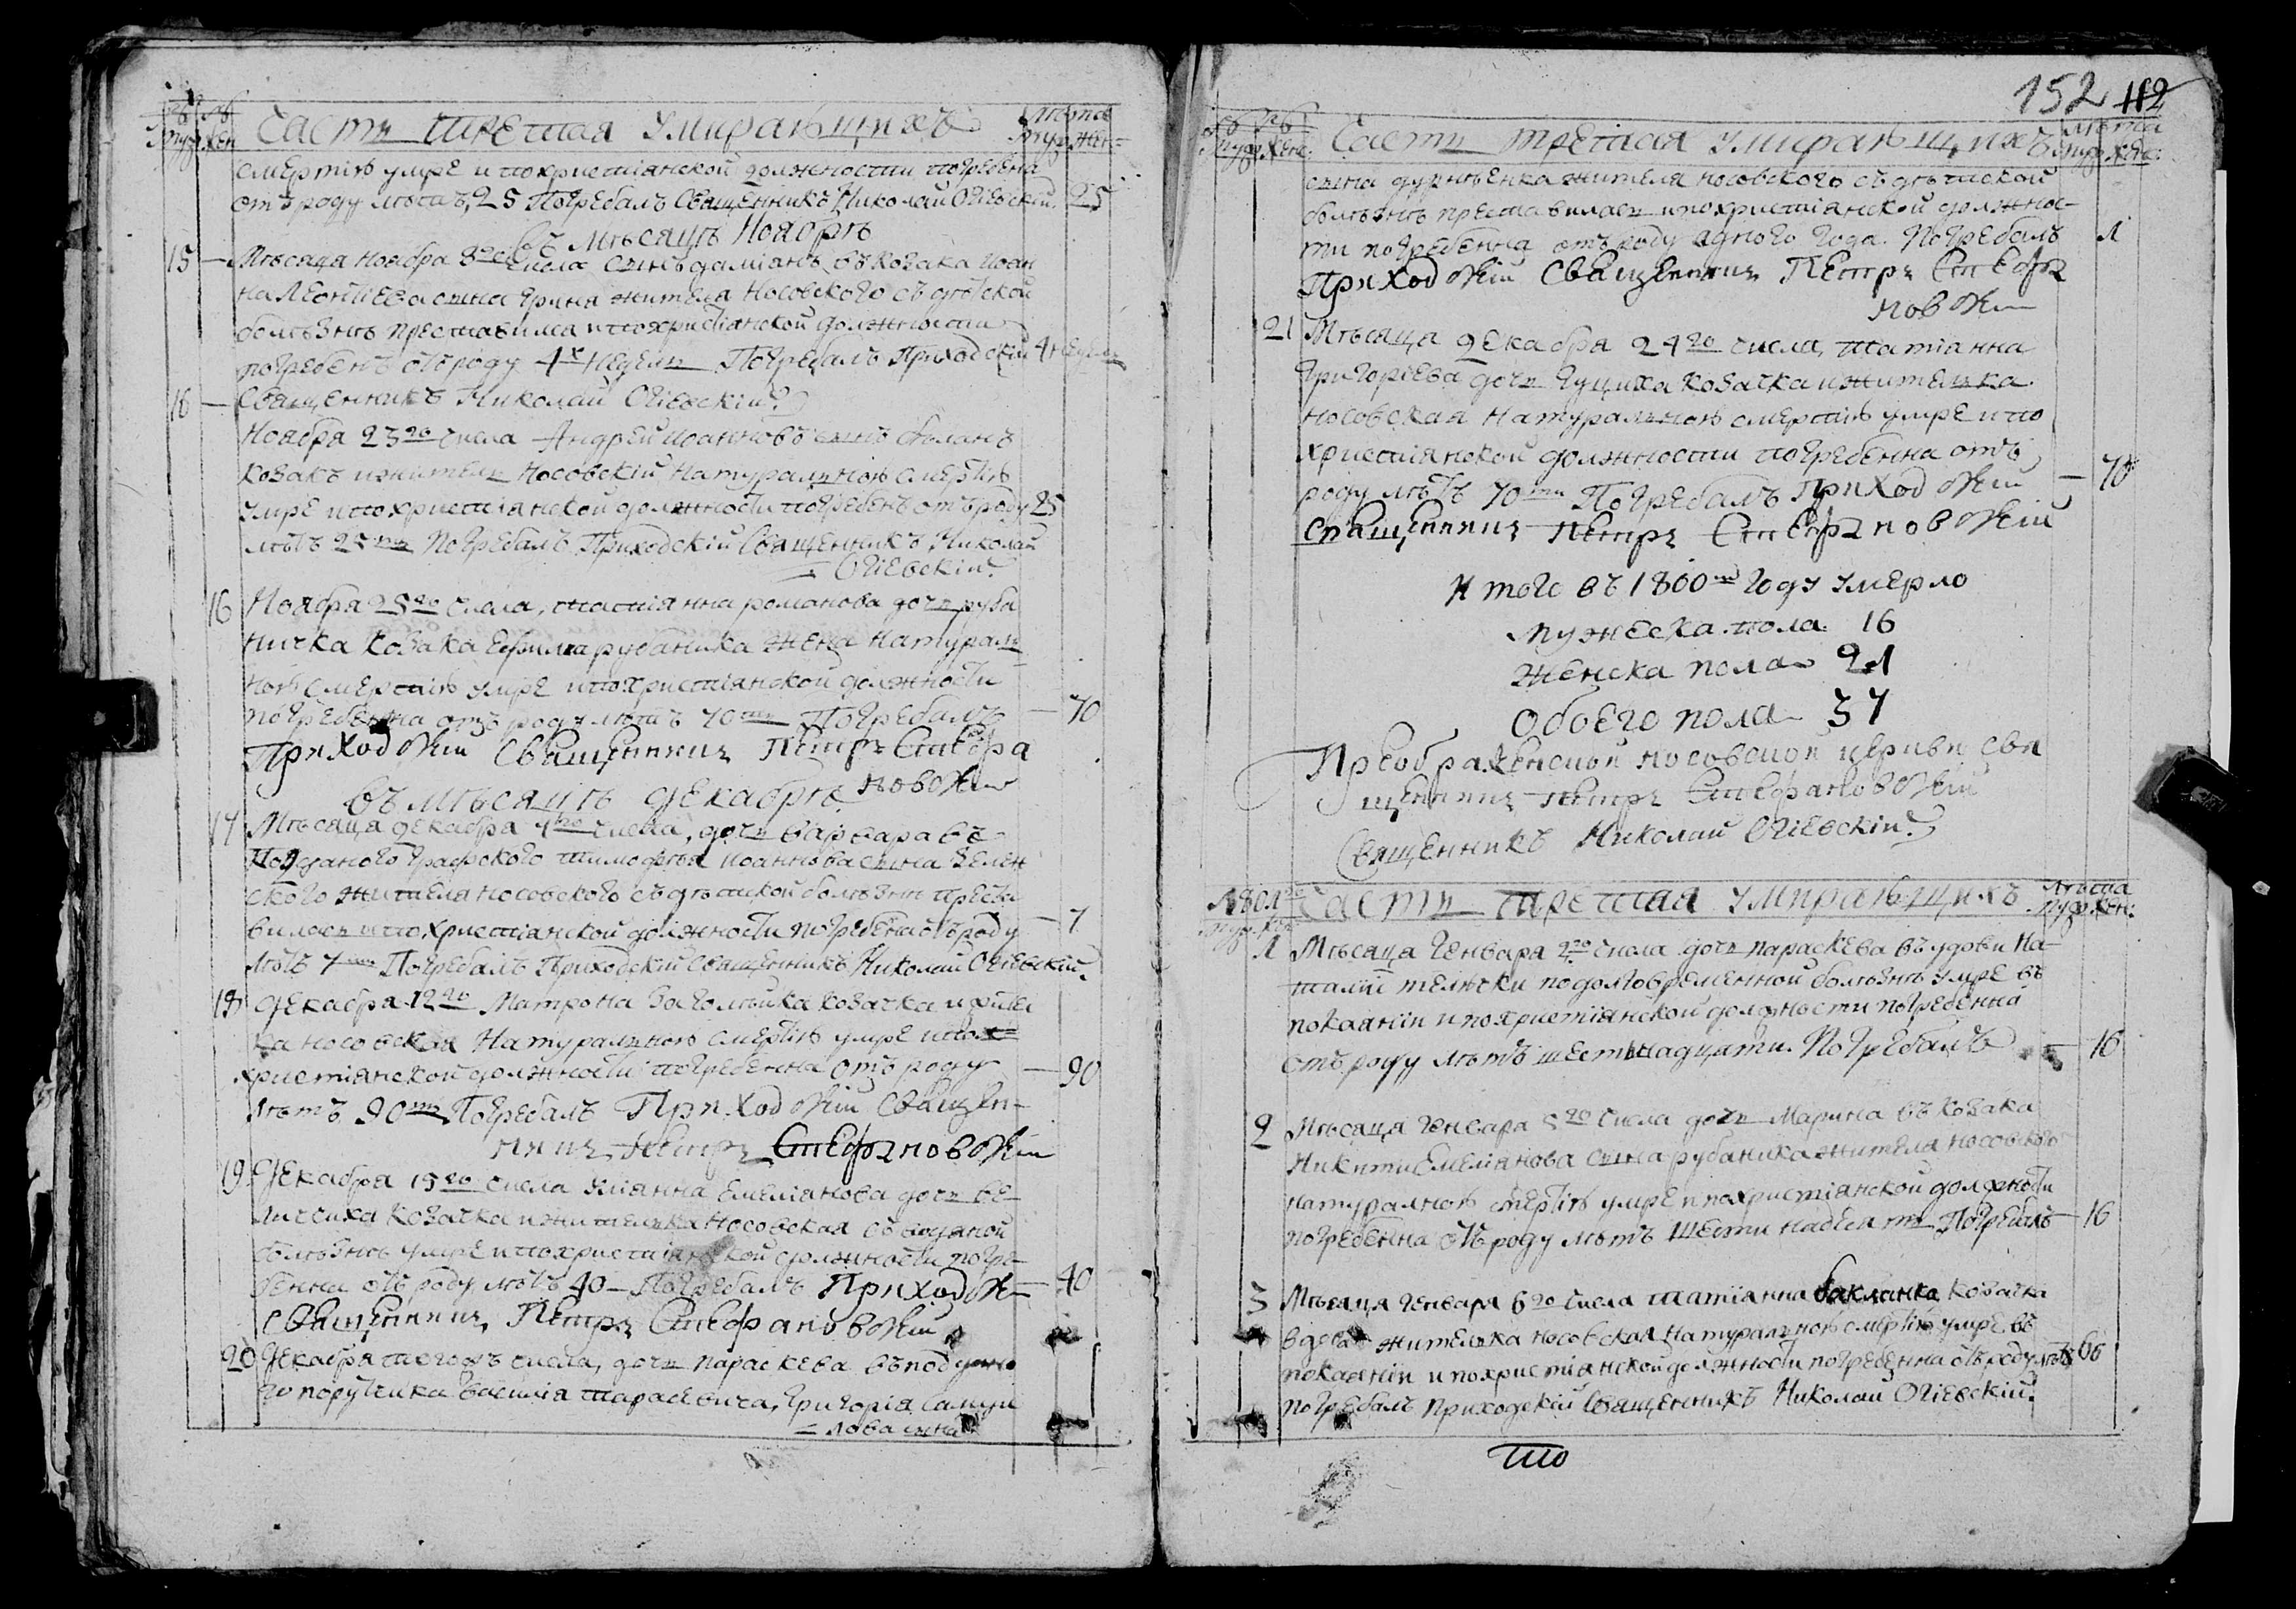 Часть третая умирающихъ
муж жен
лѣта
муж жен
смертію умре и похристіянской должности погребена
отъ роду лѣтъ, 25 Погребалъ Священникъ Николай Огіевскій. 25
въ мѣсяцѣ Ноябрѣ
15 — Мѣсяца Ноября 8го Числа Сынъ даміянъ въ Козака Иоан
на Леонтіева сына жителя Носовского съ дѣтской
болѣзнѣ преставился и похристіянской должности
погребенъ отъ роду 4х недель Погребалъ Приходскій 4 недели
Священникъ Николай Огіевскій
16 — Ноября 23го Числа Андрей Иоанновъ сынъ
Козакъ и житель Носовскій натуральною смертію
умре и похристіянской должности погребенъ отъ роду 25
лѣтъ 25ть Погребалъ Приходскій Священникъ Николай
Огіевскій
16 Ноября 25го Числа, татіянна романова дочь руба
ничка Козака Ефима рубаника жена натураль
ною смертію умре и похристіянской должности
погребенна отъ роду лѣтъ 70ти Погребалъ — 70
Приходскій Священникъ Петръ Стефа
новскій
въ мѣсяцѣ декабрѣ
17 Мѣсяца декабря 7го Числа, дочь варвара въ
Подданого графского тимофея иоаннова сына Зелен
ского жителя носовского съ дѣтской болѣзни преста
вилась и похристіянской должности погребена отъ роду — 7
лѣтъ 7ми Погребалъ Приходскій Священникъ Николай Огіевскій.
18 декабря 12го Матрона Козачка и жител
ка носовская натуральною смертію умре и по
христіянской должности погребенна отъ роду — 90
лѣтъ 90ть Погребалъ Приходскій Священ
никъ Петръ Стефановскій
19 декабря 15го Числа Уліянна Емеліянова дочь ве
личиха Козачка и жителька Носовская съ водяной
болѣзнѣ умре и похристіянской должности погре
бенна отъ роду лѣтъ 40 — Погребалъ Приходскій — 40
Священникъ Петръ Стефановскій
20 декабря тогожъ Числа, дочь параскева въ поддано
го поручика василія тарасевича, Григорія самуи
лова сына
152 112
Часть третая умирающихъ
муж жен
лѣта
муж жен
сына дурнѣенка жителя носовского съ дѣтской
болѣзнѣ преставилась и похристіянской должнос
ти погребенна отъ роду одного года. Погребалъ 1
Приходскій Священникъ Петръ Стефа
новскій
21 Мѣсяца декабря 24го Числа, татіянна
григоріева дочь Гуциха Козачка и жителька
носовская натуральною смертію умре и по
христіянской должности погребенна отъ
роду лѣтъ 70ти Погребалъ Приходскій — 70
Священникъ Петръ Стефановскій
И того въ 1800мъ году умерло
мужеска пола 16
женска пола 21
Обоего пола 37
Преображенской носовской церкви свя
щенникъ Петръ Стефановскій
Священникъ Николай Огіевскій
Часть третая умирающихъ
муж жен
Лѣта
муж жен
1 Мѣсяца Генваря 2го Числа дочь параскева въ удови На
таліи по долговременной болѣзнѣ умре въ
покаянін и похристіянской должности погребенна
отъ роду лѣтъ шестьнадцати. Погребалъ — 16
2 Мѣсяца Генваря 5го Числа дочь Марина въ Козака
Никити Емеліянова сына рубаника жителя носовского
натуралною смертію умре и похристіянской должности
погребенна отъ роду лѣтъ Шестинадсять Погребалъ — 16
3 Мѣсяца Генваря 6го Числа татіянна бакланка Козачка
вдова жителька носовская натуральною смертію умре въ
покаянін и похристіянской должности погребенна отъ роду лѣтъ 66
погребалъ Приходскій Священникъ Николай Огіевскій.